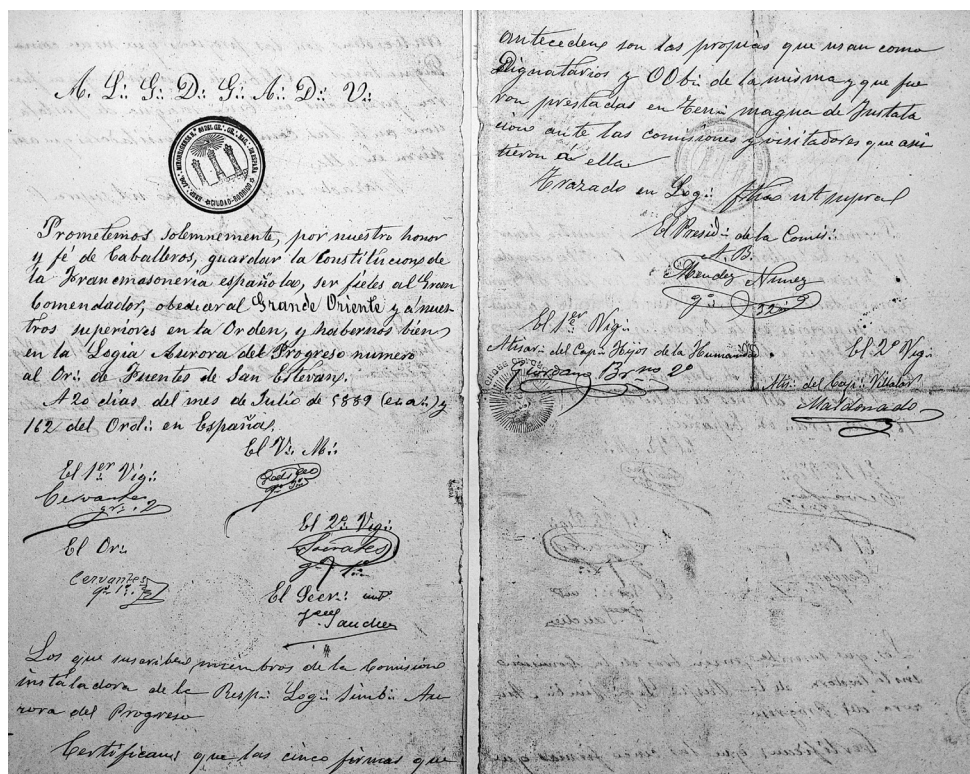 A. L∴ G∴ D∴ G∴ A∴ D∴ V∴
Prometemos, solemnemente, por nuestro honor
y fé de Caballeros, guardar la Constitucion de
la Francmasoneria española, ser fieles al Gran
Comendador, obedecer al Grande Oriente y á nues
tros superiores en la Orden, y habernos bien
en la Logia Aurora del Progreso numero
al Or∴ de Fuentes de San Estevan.
A 20 dias del mes de Julio de 5889 (e∴v∴) y
162 del Ord∴ en España.
El V∴ M∴
El 1er Vig∴
Cervantes
gr∴ 2
El 2º Vig∴
Socrates
El Or∴
Cervantes
El Secr∴
Sanchez
Los que suscriben, miembros de la Comision
instaladora de la Resp∴ Log∴ Simb∴ Au
rora del Progreso
Certifican: que las cinco firmas que
anteceden son las propias que usan como
Dignatarios y OObi∴ de la misma y que fue
ron prestadas en Ten∴ magna de Instala
cion ante las comisiones y visitadores que asis
tieron á ella
Trazado en Log∴ fecha ut supra
El Presid∴ de la Comis∴
A. B.
Mendez Nuñez
El 1er Vig∴
del Cap∴ Hijos de la Humanidad
Giordano Bruno 2º
El 2º Vig∴
del Cap∴ Villalar
Maldonado